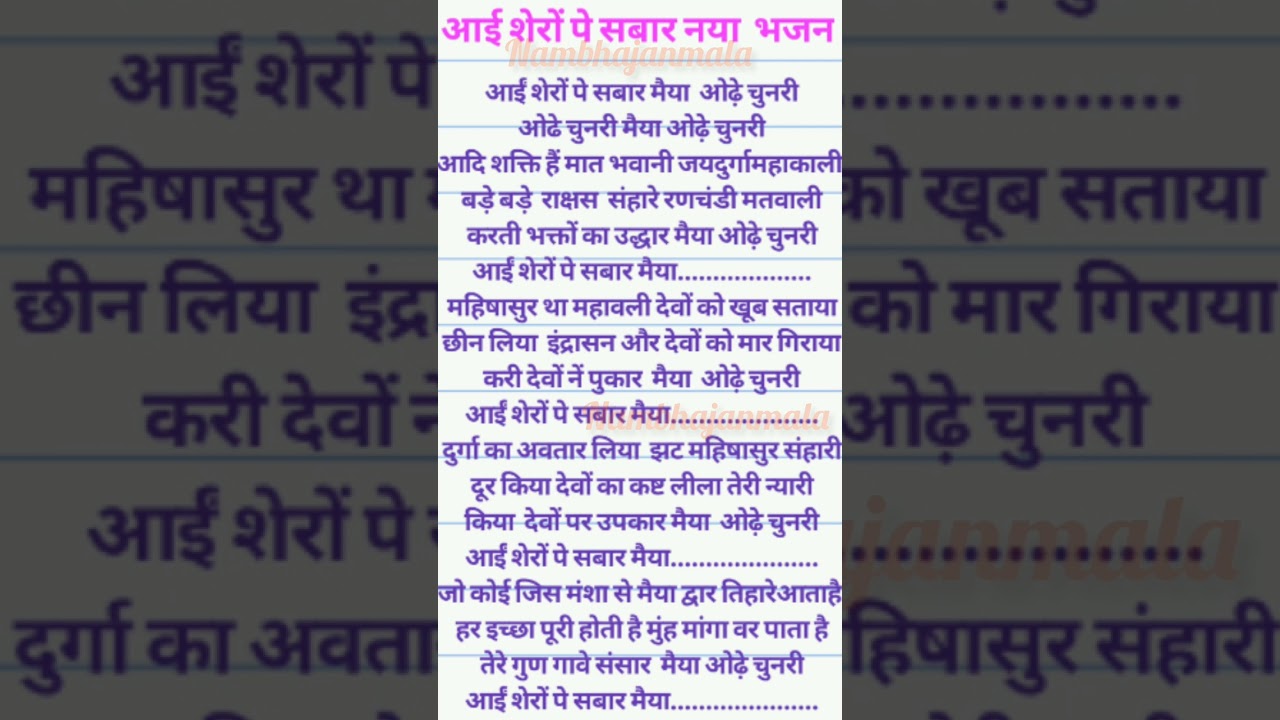 आई शेरों पे सबार नया भजन
Nambhajanmala
आईं शेरों पे सबार मैया ओढ़े चुनरी
ओढे चुनरी मैया ओढ़े चुनरी
आदि शक्ति हैं मात भवानी जयदुर्गामहाकाली
बड़े बड़े राक्षस संहारे रणचंडी मतवाली
करती भक्तों का उद्धार मैया ओढ़े चुनरी
आईं शेरों पे सबार मैया...................
महिषासुर था महावली देवों को खूब सताया
छीन लिया इंद्रासन और देवों को मार गिराया
करी देवों नें पुकार मैया ओढ़े चुनरी
आईं शेरों पे सबार मैया.....................
Nambhajanmala
दुर्गा का अवतार लिया झट महिषासुर संहारी
दूर किया देवों का कष्ट लीला तेरी न्यारी
किया देवों पर उपकार मैया ओढ़े चुनरी
आईं शेरों पे सबार मैया.....................
जो कोई जिस मंशा से मैया द्वार तिहारेआताहै
हर इच्छा पूरी होती है मुंह मांगा वर पाता है
तेरे गुण गावे संसार मैया ओढ़े चुनरी
आईं शेरों पे सबार मैया.....................